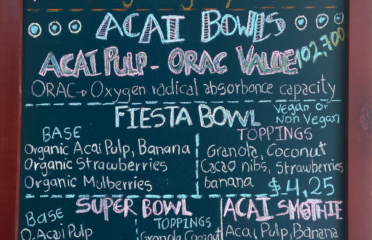 ACAI BOWLS
ACAI PULP - ORAC VALUE 102,700
ORAC→ Oxygen radical absorbance capacity
FIESTA BOWL
Vegan or
Non Vegan
BASE
Organic Acai Pulp, Banana
Organic Strawberries
Organic Mulberries
TOPPINGS
Granola, Coconut
Cacao nibs, Strawberries
banana
$4.25
SUPER BOWL
BASE
O. Acai Pulp
TOPPINGS
Granola Coconut
ACAI SMOTHIE
Acai, Pulp, Banana